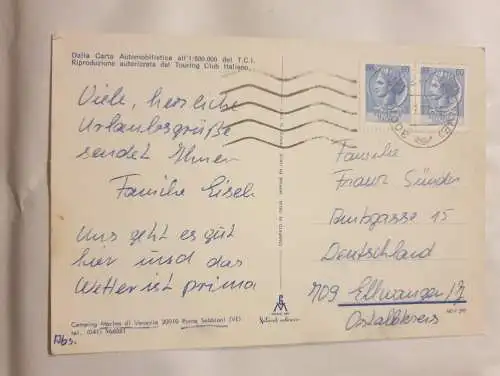 Dalla Carta Automobilistica all'1:800.000 del T.C.I.
Riproduzione autorizzata dal Touring Club Italiano.
Viele, herzliche
Urlaubsgrüße
sendet Ihnen
Familie
Uns geht es gut
hier und das
Wetter ist prima
Camping Marina di Venezia 30010 Punta Sabbioni (VE)
Abs.
Familie
Franz Sünder
Amtsgasse 15
Deutschland
709 Ellwangen/J.
Ostalbkreis